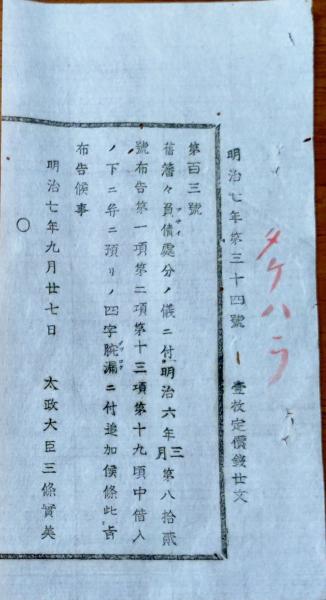 明治七年第三十四號 壹枚定價錢廿文
タケハラ
第百三號
舊藩々負債處分ノ儀ニ付明治六年三月第八拾貳
號布告第一項第二項第十三項第十九項中借入
ノ下ニ并ニ預リノ四字脱漏ニ付追加候條此旨
布告候事
明治七年九月廿七日 太政大臣三條實美
○